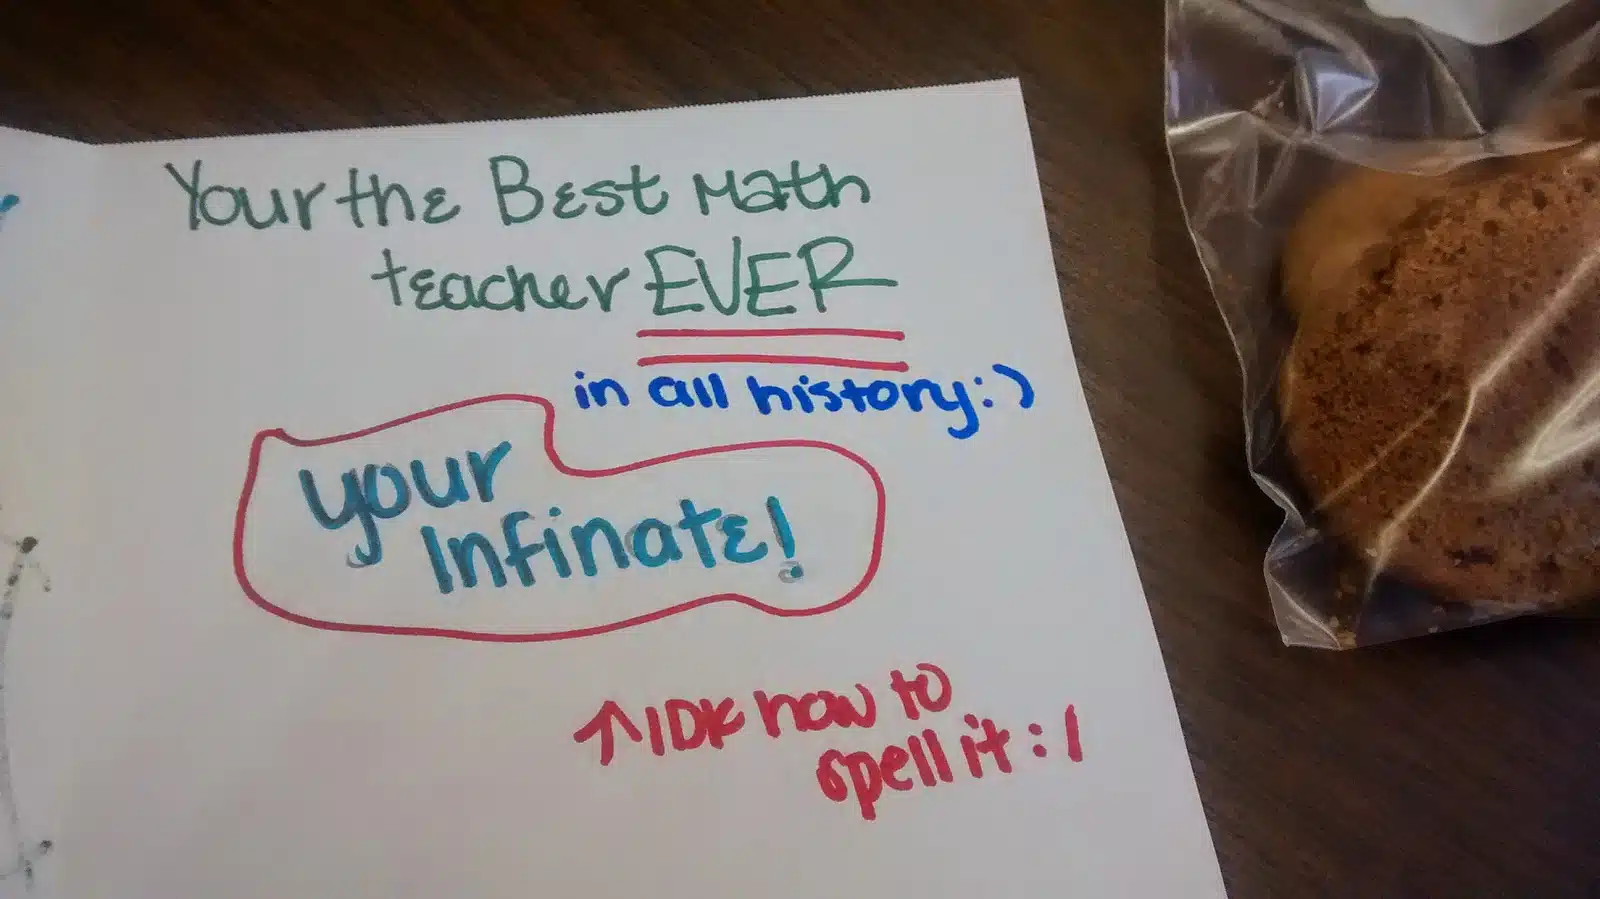 Your the Best Math
teacher EVER
in all history:)
your
Infinate!
↑IDK how to
spell it :/